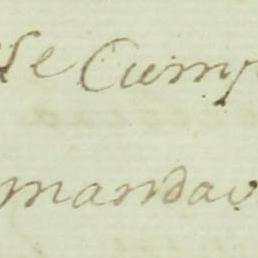 de Cump
mandav